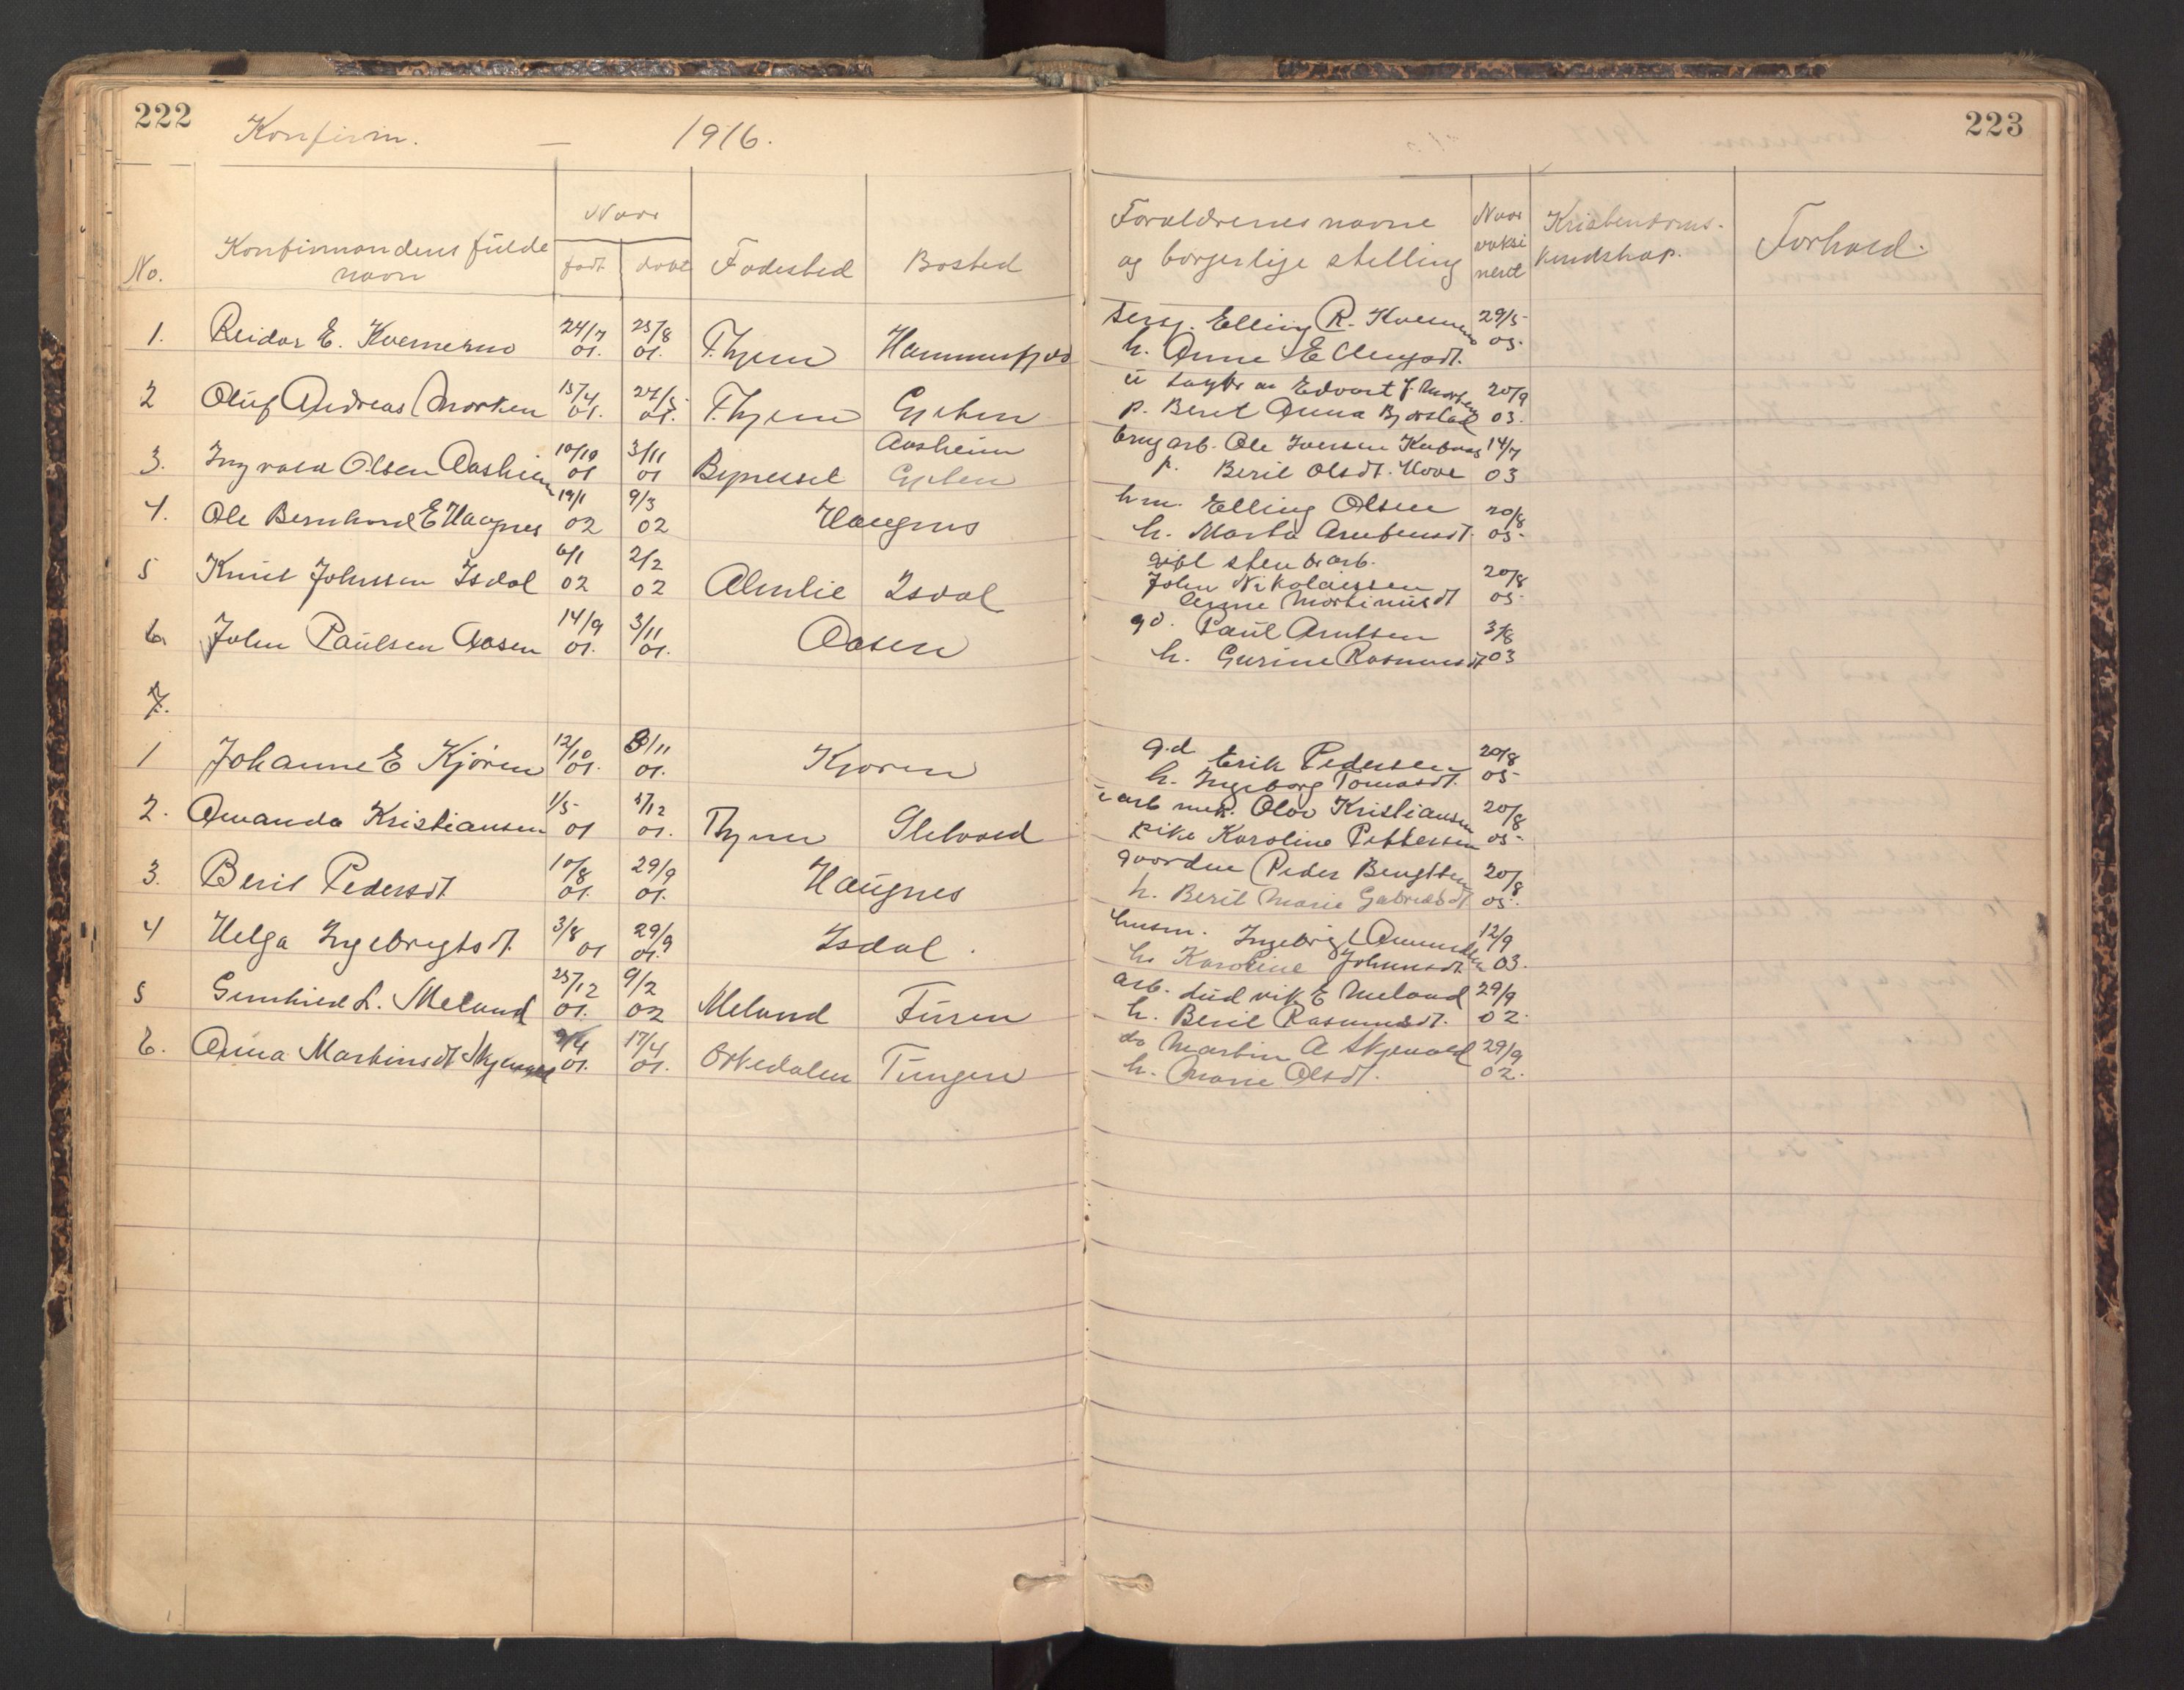 222
Konfirm. — 1916.
223
No.
Konfirmandens fulde navn
Naar
født
døbt
Fødested
Bosted
Forældrenes navne og borgerlige stelling
Naar vaksinert
Kristendomskundskap.
Forhold.
1. Reidar E. 24/7 01. 25/8 01. T.hjem Sersj. Elling R. 29/5 05.
h. Anne Ellingsdt.
2 Oluf Andreas Morken 15/4 01. 27/5 01. T.hjem Edvart J. Morken 20/9 03.
p. Berit Anna Bjørstad
3. Ingvald Olsen Aasheim 10/10 01 3/11 01 Aasheim arb. Ole Iversen 14/7 03
p. Berit Olsdt. Hove
4. Ole Bernhard E Haugnes 19/1 02 9/3 02 Haugnes hm. Elling Olsen 20/8 05.
h. Marta
5 Knut Johnsen Isdal 6/1 02 2/2 02 Almlie Isdal arb.
John Nikolaissen 20/8 05.
Anne Martinusdt
6. John Paulsen Aasen 14/9 01. 3/11 01. Aasen gd. Paul Arntsen 3/8 03
h. Gurine Rasmusdt
7.
1 Johanne E Kjøren 12/10 01. 3/11 01. Kjøren g.d. Erik Pedersen 20/8 05.
h. Ingeborg Tomasdt.
2. Amanda Kristiansen 1/5 01 01. arb Olav Kristiansen 20/8 05.
pike Karoline Pettersen
3. Berit Pedersdt 10/8 01. 29/9 01. Haugnes Peder Bengtsen 20/8 05.
h. Berit Marie Gabrielsdt
4 Helga Ingebrigtsdt. 3/8 01 29/9 01. Isdal. husm. Ingebrigt Amundsen 12/9 03.
h. Karoline Johnsdt.
5 Gunhild L. Meland 25/12 01. 9/2 02 Meland Furen arb. Ludvik E Meland 29/9 02.
h. Berit Rasmusdt.
6. Anna Martinsdt 01. 17/4 01. Orkedalen Tungen do Martin A Skjevald 29/9 02.
h. Marie Olsdt.